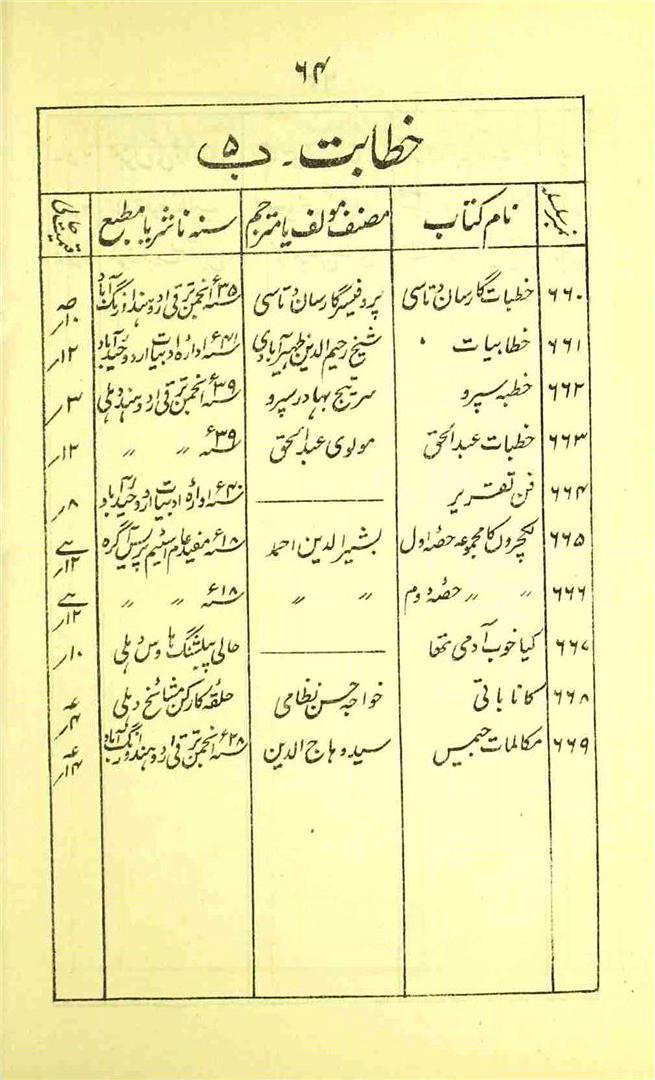 ۶۴
خطابت ۔ ب ۵
نمبر سلسلہ نام کتاب مصنف مولف یا مترجم سنہ ناشر یا مطبع قیمت حالی
۶۶۰ خطبات گارسان دتاسی پروفیسر گارسان دتاسی ۳۵ء انجمن ترقی اردو ہند اورنگ آباد ۱۰/
۶۶۱ خطابیات شیخ رحیم الدین ظہیرآبادی ۴۱ء ادارہ ادبیات اردو حیدرآباد ۱۲/
۶۶۲ خطبہ سپرو سر تیج بہادر سپرو ۳۹ء انجمن ترقی اردو ہند دہلی ۳/
۶۶۳ خطبات عبدالحق مولوی عبدالحق ۳۹ء " " ۱۲/
۶۶۴ فن تقریر ——— ۴۰ء ادارہ ادبیات اردو حیدرآباد ۸/
۶۶۵ لکچروں کا مجموعہ حصہ اول بشیر الدین احمد ۱۸ء مفید عام اسٹیم پریس آگرہ ۱۲/
۶۶۶ " " حصہ دوم " " ۱۸ء " " ۱۲/
۶۶۷ کیا خوب آدمی تھا ——— حالی پبلشنگ ہاوس دہلی ۱۰/
۶۶۸ کانا باتی خواجہ حسن نظامی حلقہ کارکن مشائخ دہلی ۴/
۶۶۹ مکالمات جیمس سید وہاج الدین ۲۸ء انجمن ترقی اردو ہند اورنگ آباد ۱۴/